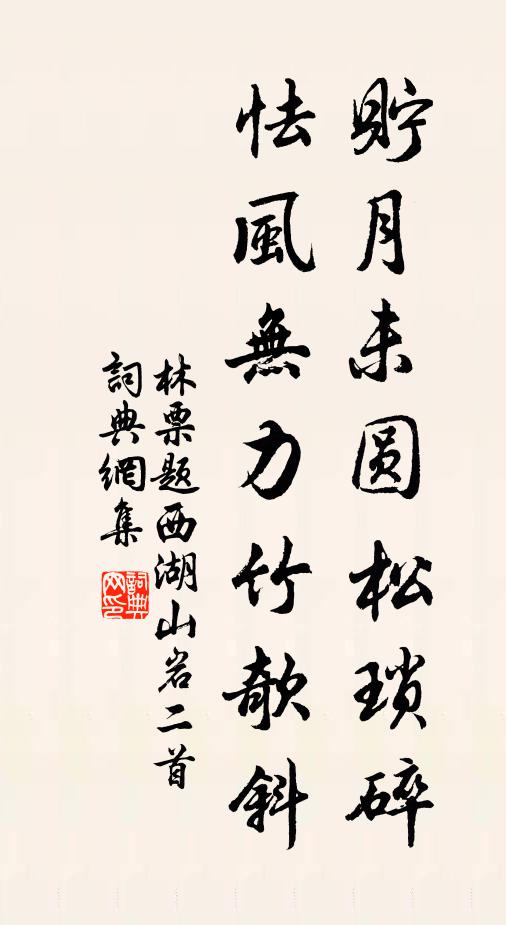 貯月未圓松瑣碎
怯風無力竹欹斜
林票题西湖山岩二首
詞典網集
詞典网印